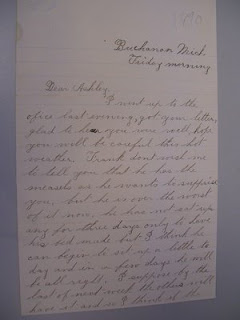 1890
Buchanan Mich
Friday morning
Dear Ashley,
I went up to the
office last evening, got your letter,
glad to hear you were well, hope
you will be careful this hot
weather. Frank dont wish me
to tell you that he has the
measels as he wants to surprise
you, but he is over the worst
of it now, he has not set up
any for three days only to have
his bed made but I think he
can begin to set up a little to
day and in a few days he will
be all right. I suppose by the
last of next week the others will
have it and I think if the